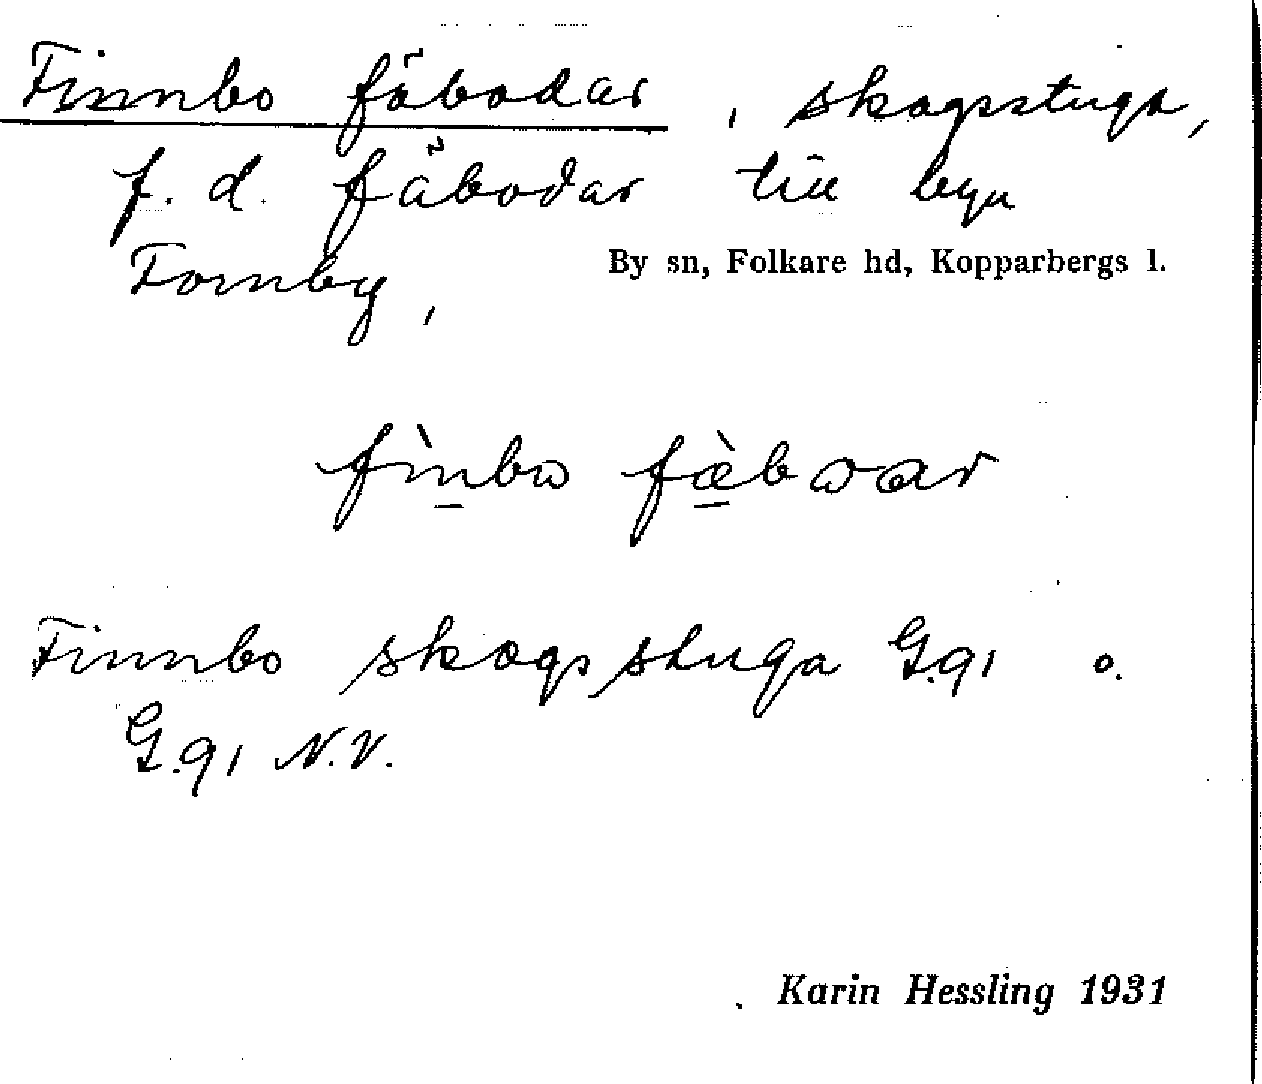 Finnbo fäbodar, skogsstuga,
f. d. fäbodar till byn
Fornby,
By sn, Folkare hd, Kopparbergs l.
fìnbω fæ̀bωar
Finnbo skogsstuga G.91 o.
G.91 N.V.
Karin Hessling 1931